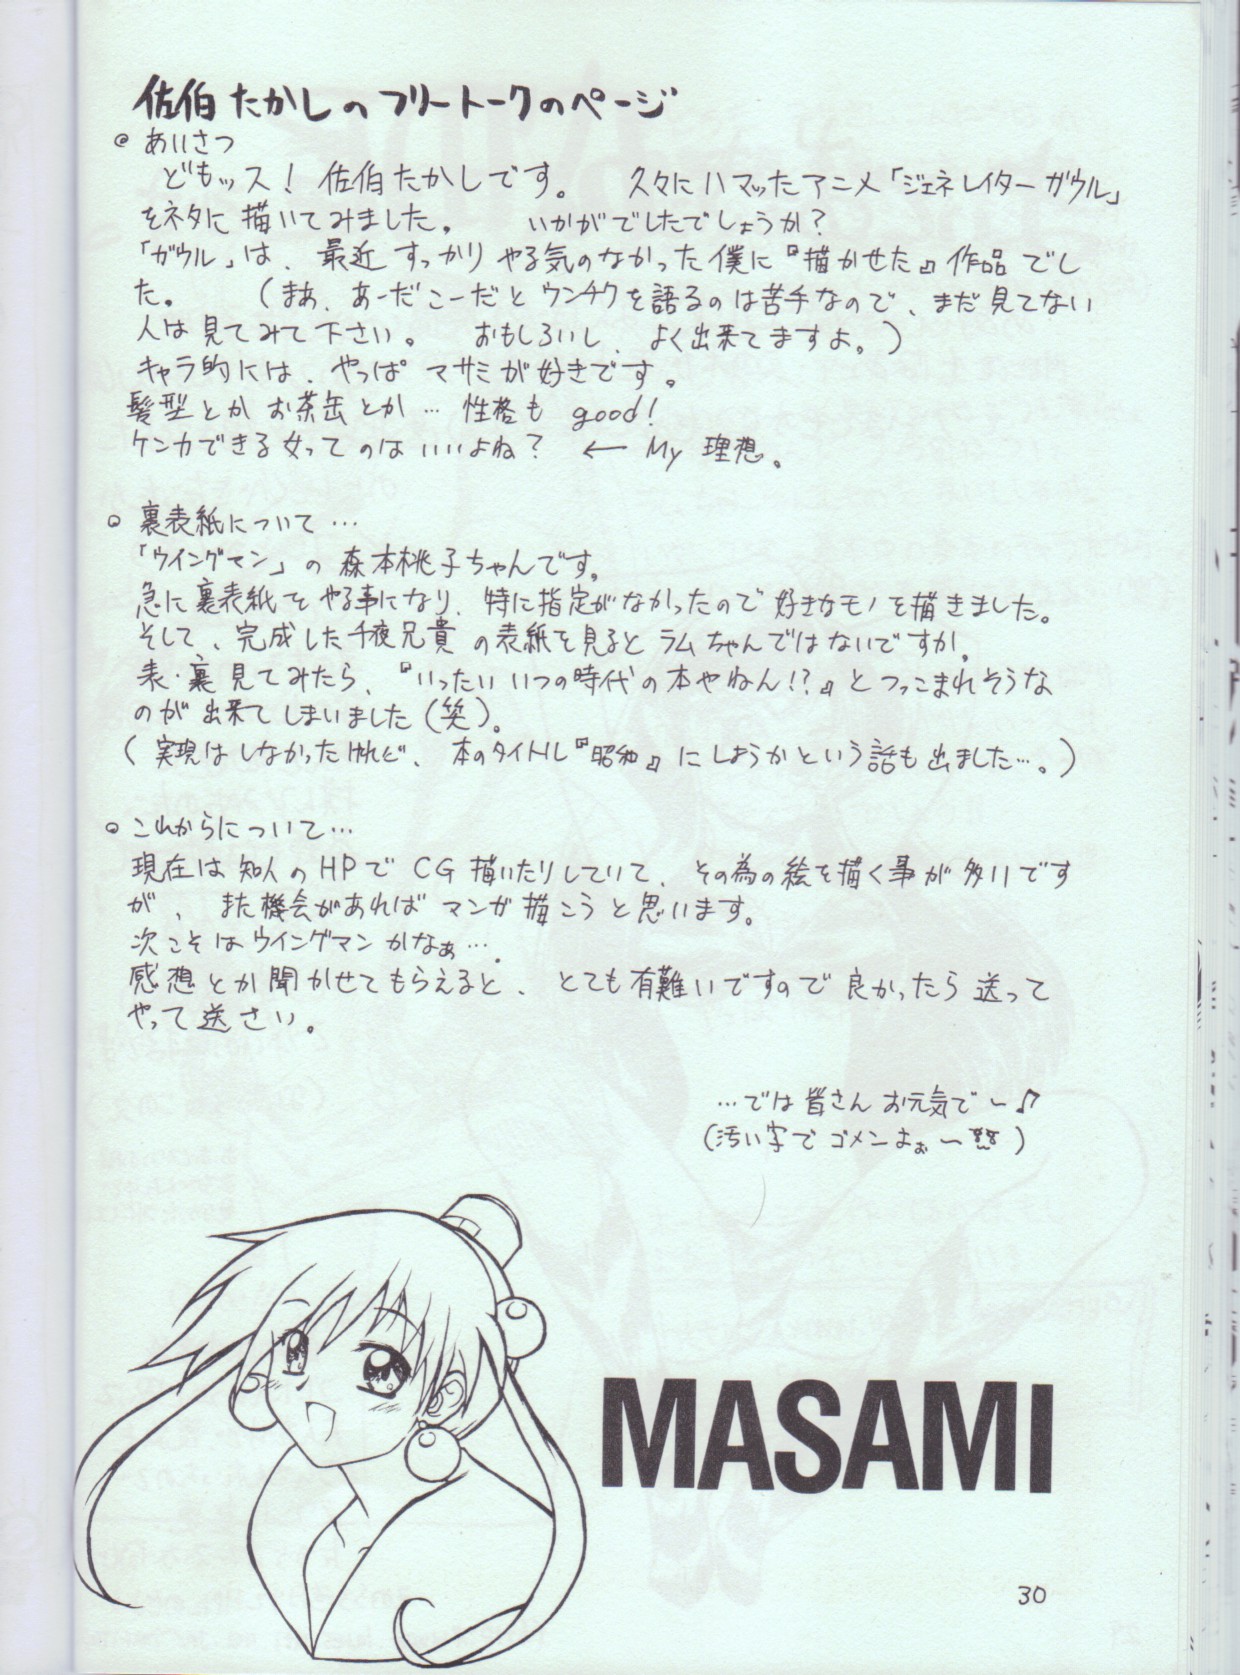 佐伯たかしのフリートークのページ
◎ あいさつ
どもッス! 佐伯たかしです。 久々にハマッたアニメ「ジェネレイターガウル」
をネタに描いてみました。 いかがでしたでしょうか?
「ガウル」は、最近すっかりやる気のなかった僕に『描かせた』作品でし
た。 (まあ、あーだこーだとウンチクを語るのは苦手なので、まだ見てない
人は見てみて下さい。 おもしろいし、よく出来てますよ。)
キャラ的には、やっぱマサミが好きです。
髪型とかお茶缶とか… 性格も good!
ケンカできる女ってのはいいよね? ← My 理想。
○ 裏表紙について…
「ウイングマン」の森本桃子ちゃんです。
急に裏表紙をやる事になり、特に指定がなかったので好きなモノを描きました。
そして、完成した千夜兄貴の表紙を見るとラムちゃんではないですか。
表・裏見てみたら、『いったいいつの時代の本やねん!?』とつっこまれそうな
のが出来てしまいました(笑)。
(実現はしなかったけれど、本のタイトル『昭和』にしようかという話も出ました…。)
○ これからについて…
現在は知人のHPでCG描いたりしていて、その為の絵を描く事が多いです
が、また機会があればマンガ描こうと思います。
次こそはウイングマンかなぁ…。
感想とか聞かせてもらえると、とても有難いですので良かったら送って
やって下さい。
…では皆さんお元気で〜♪
(汚い字でゴメンよぉ〜)
MASAMI
30